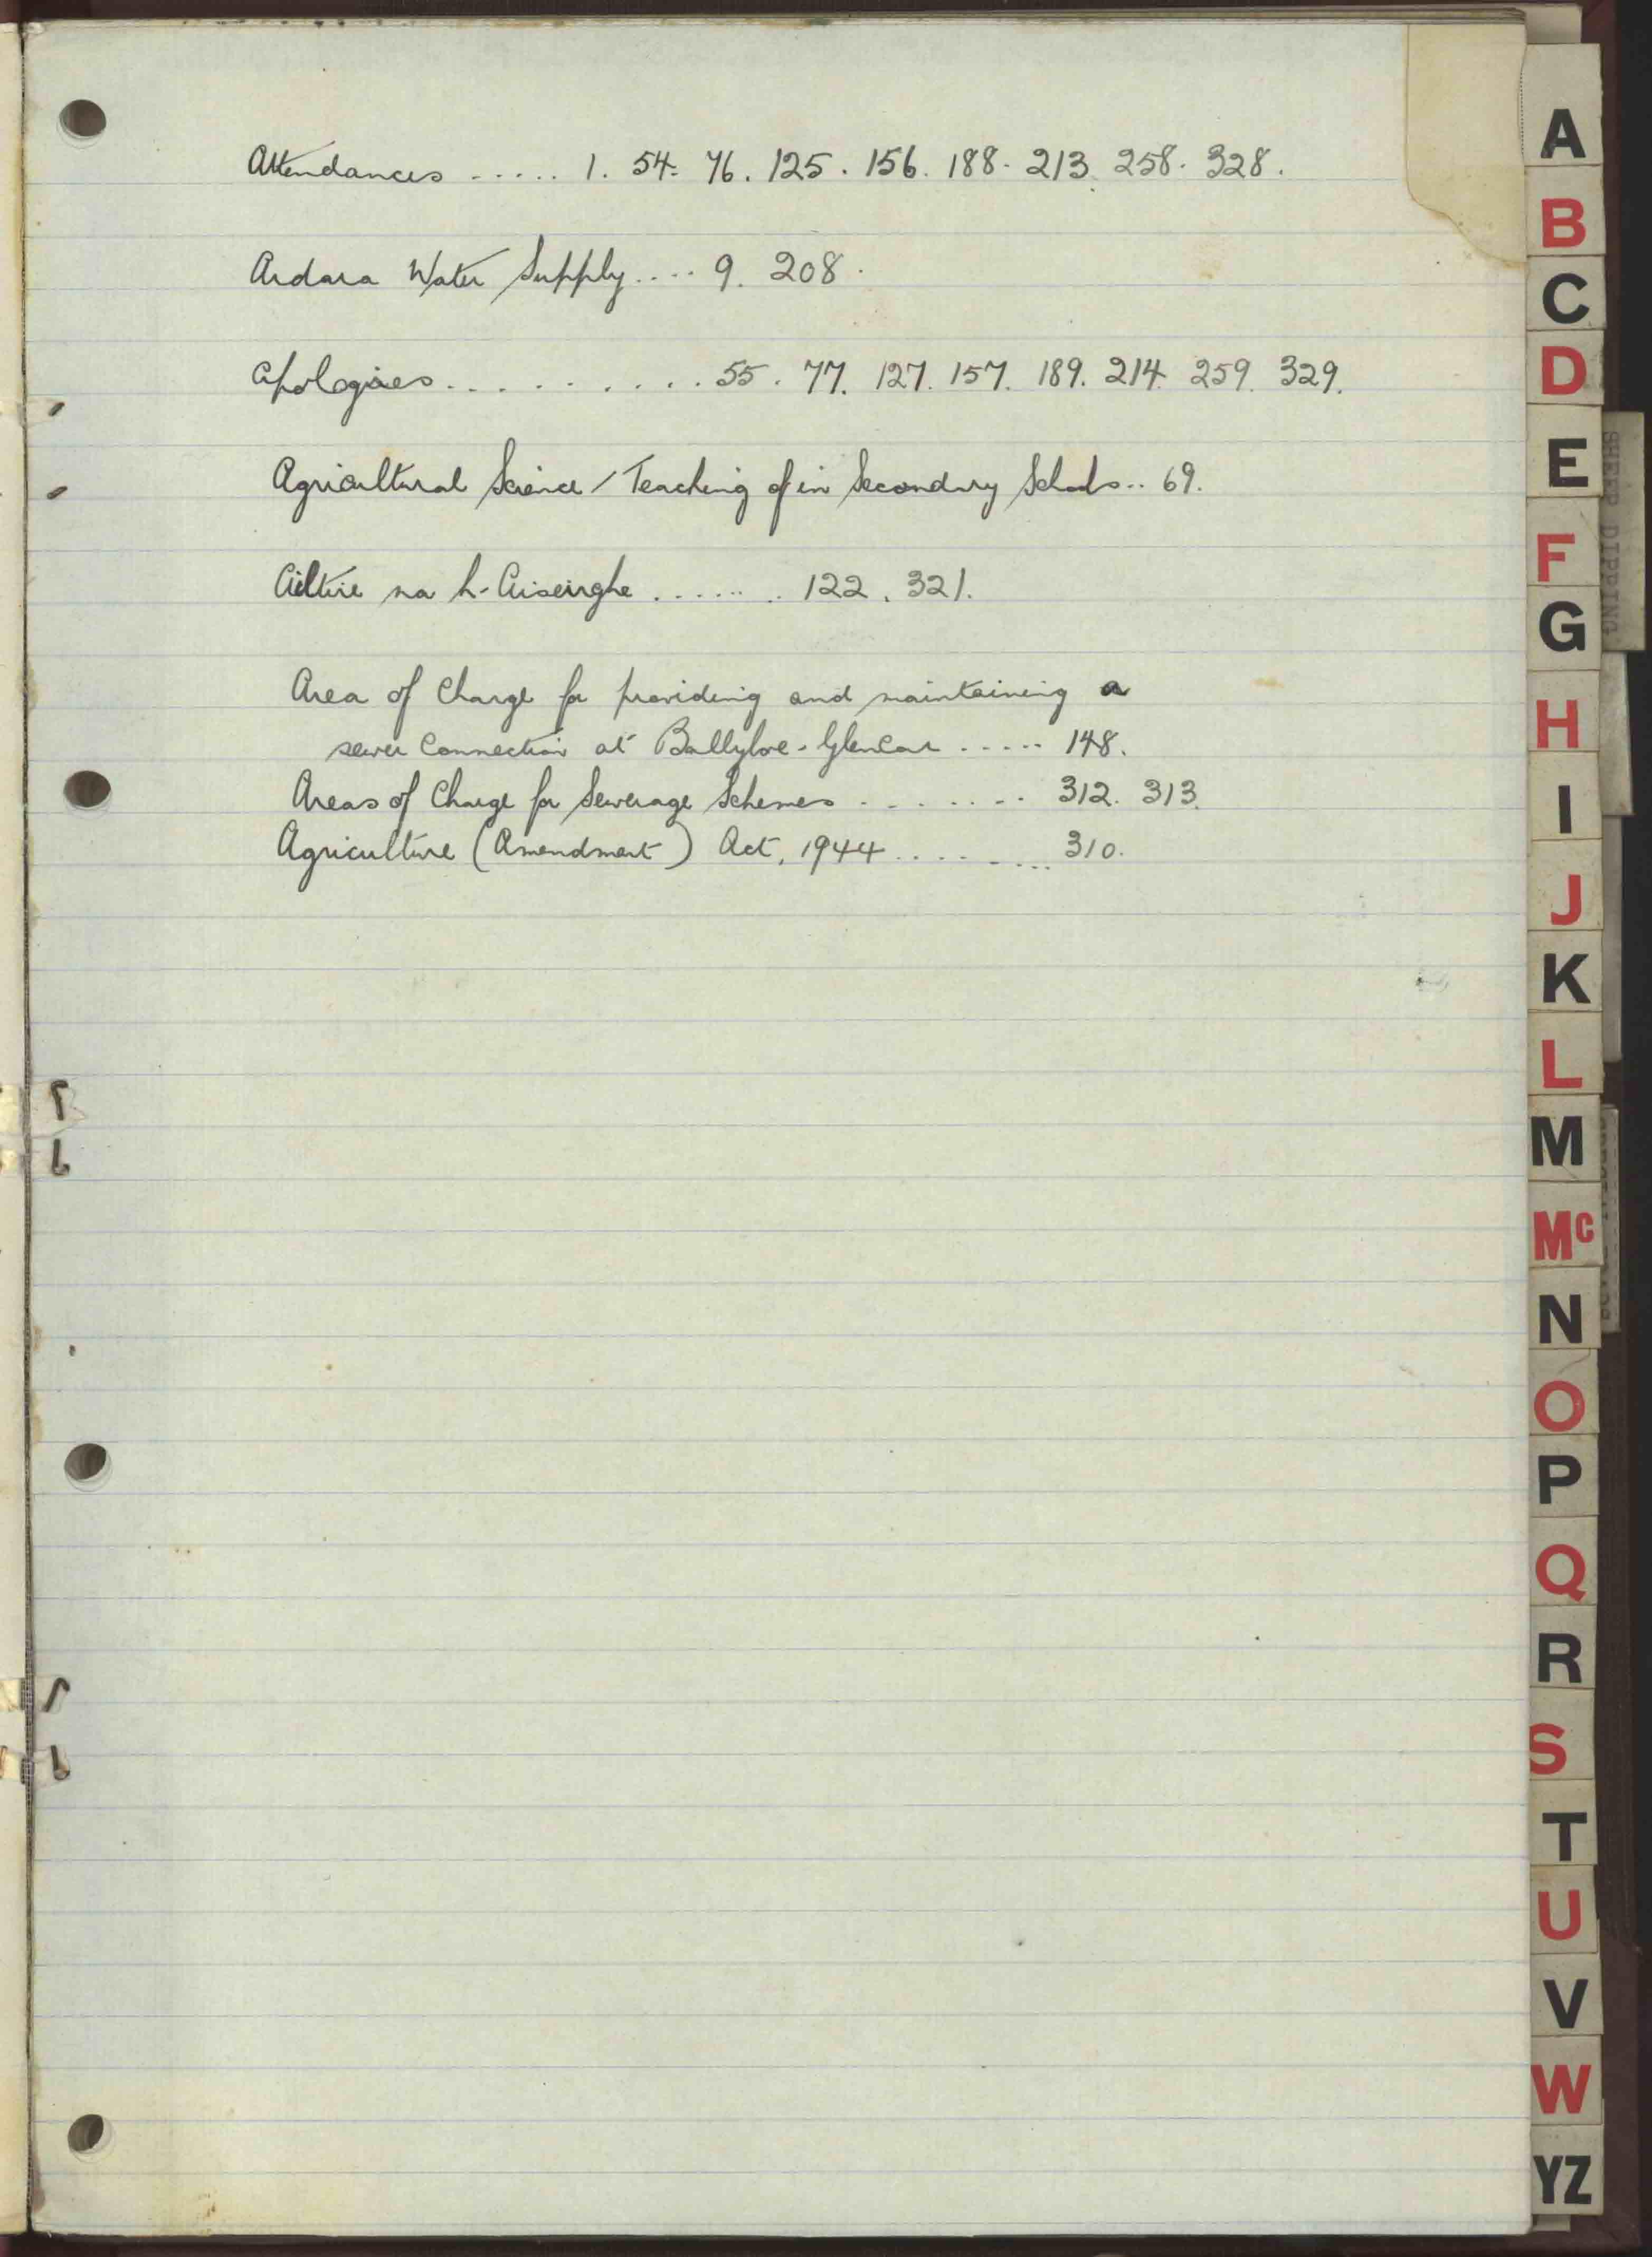 Attendances ..... 1. 54. 76. 125. 156. 188. 213. 258. 328.
Ardara Water Supply .... 9. 208.
Apologies .......... 55. 77. 127. 157. 189. 214. 259. 329.
Agricultural Science / Teaching of in Secondary Schools .. 69.
Ailtirí na h-Aiseirghe ....... 122. 321.
Area of Charge for providing and maintaining a
sewer connection at Ballyboe-Glencar ..... 148.
Areas of Charge for Sewerage Schemes ........ 312. 313.
Agriculture (Amendment) Act, 1944 ......... 310.
A
B
C
D
E
F
G
H
I
J
K
L
M
Mc
N
O
P
Q
R
S
T
U
V
W
YZ
SHEEP DIPPING